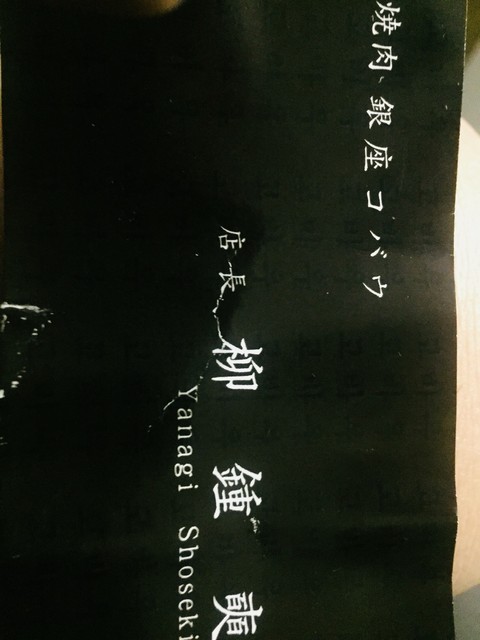 焼肉、銀座コバウ
店長 柳 鍾 奭
Yanagi Shoseki